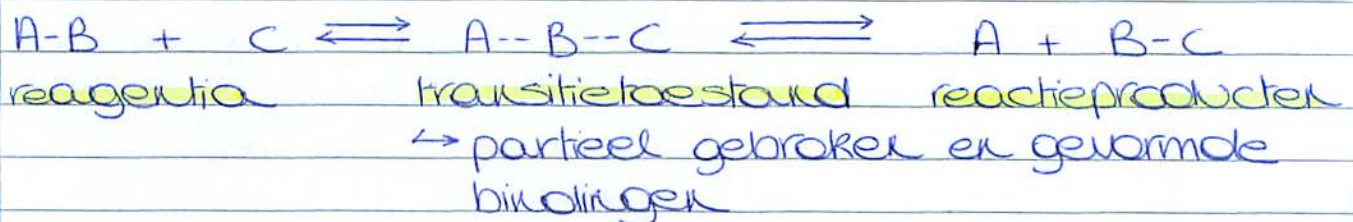 A-B + C ⇌ A--B--C ⇌ A + B-C
reagentia transitietoestand reactieproducten
↪ partieel gebroken en gevormde
bindingen